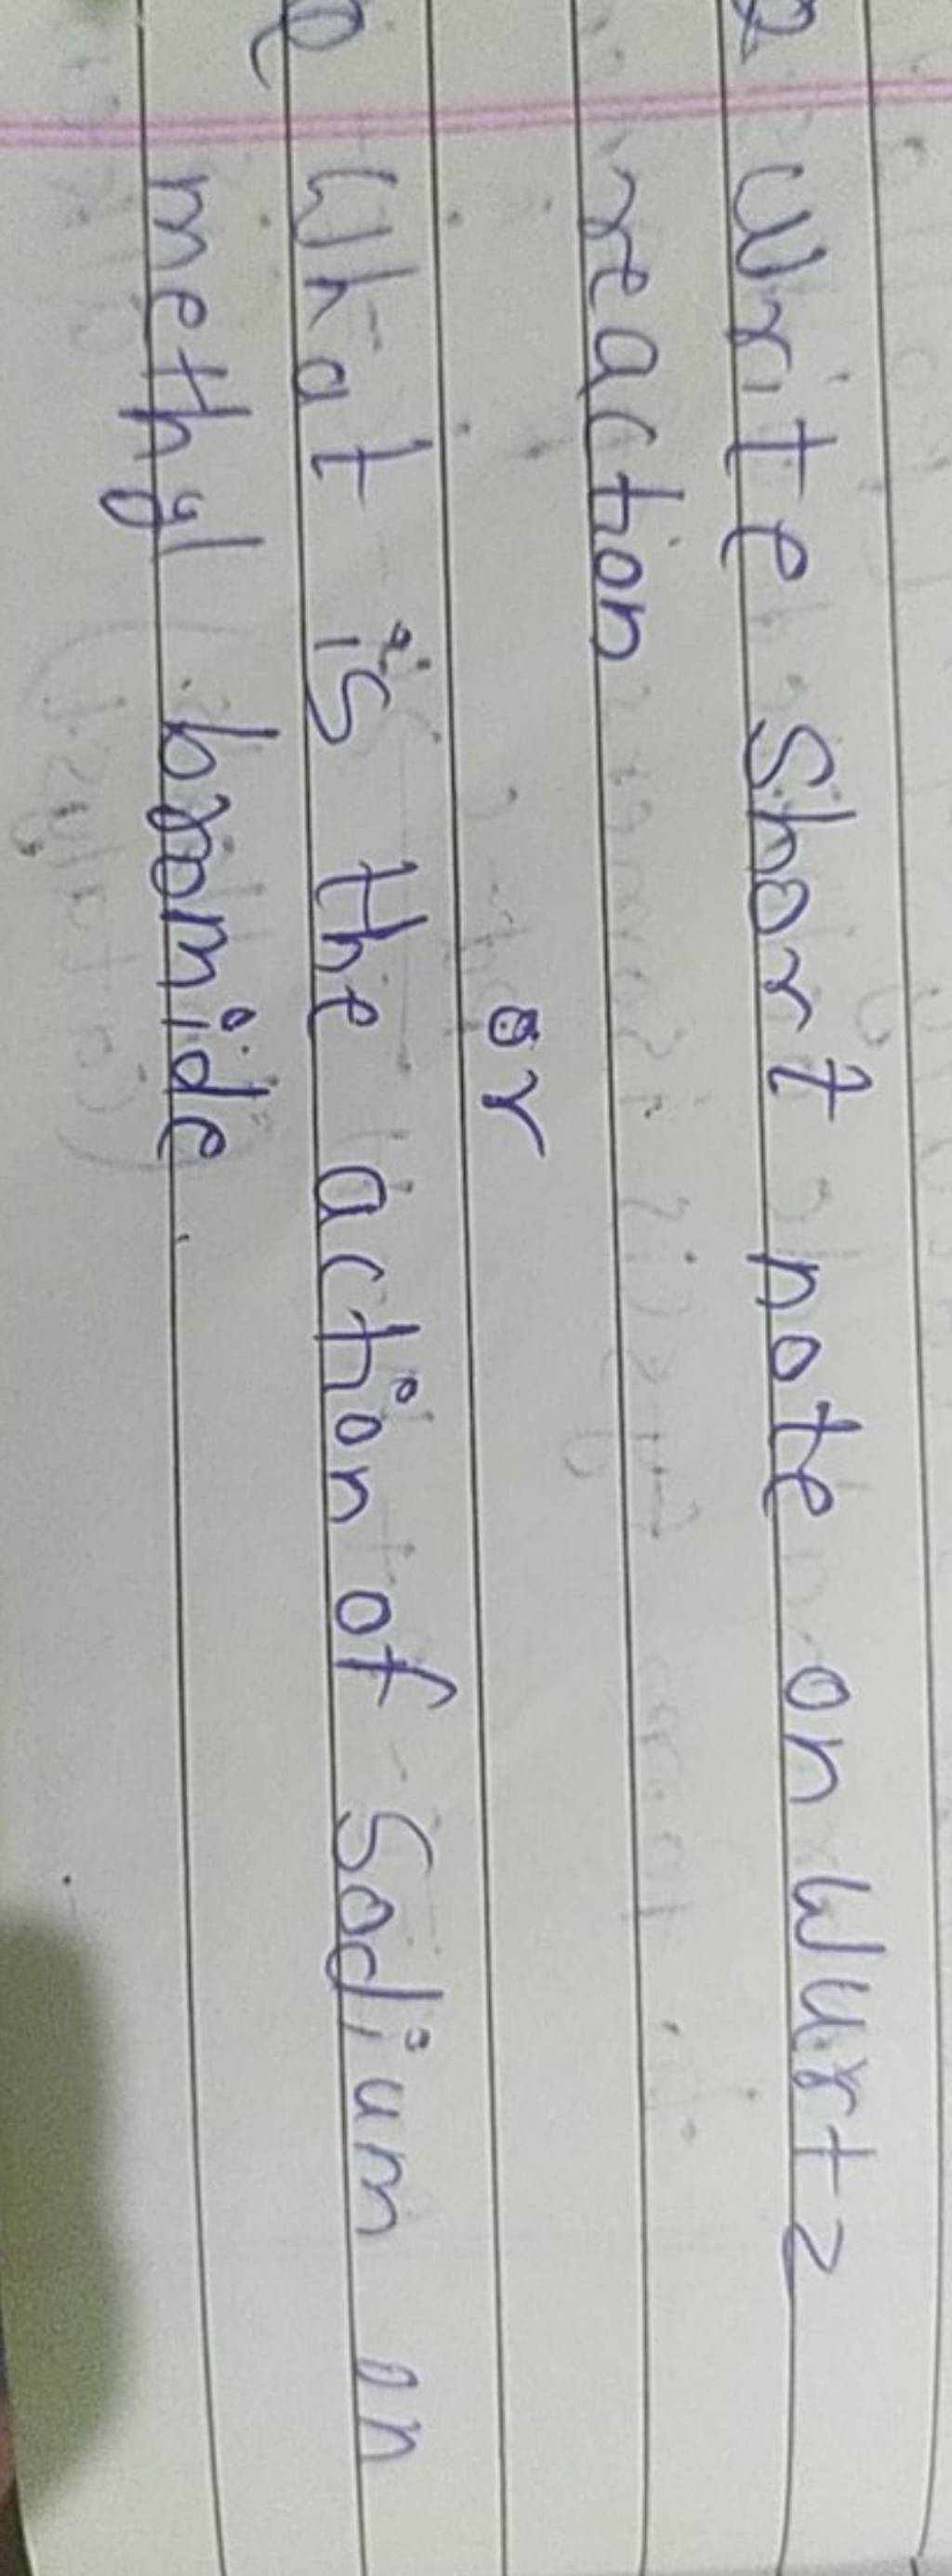 Q Write short note on Wurtz
reaction
or
Q What is the action of Sodium in
methyl bromide.